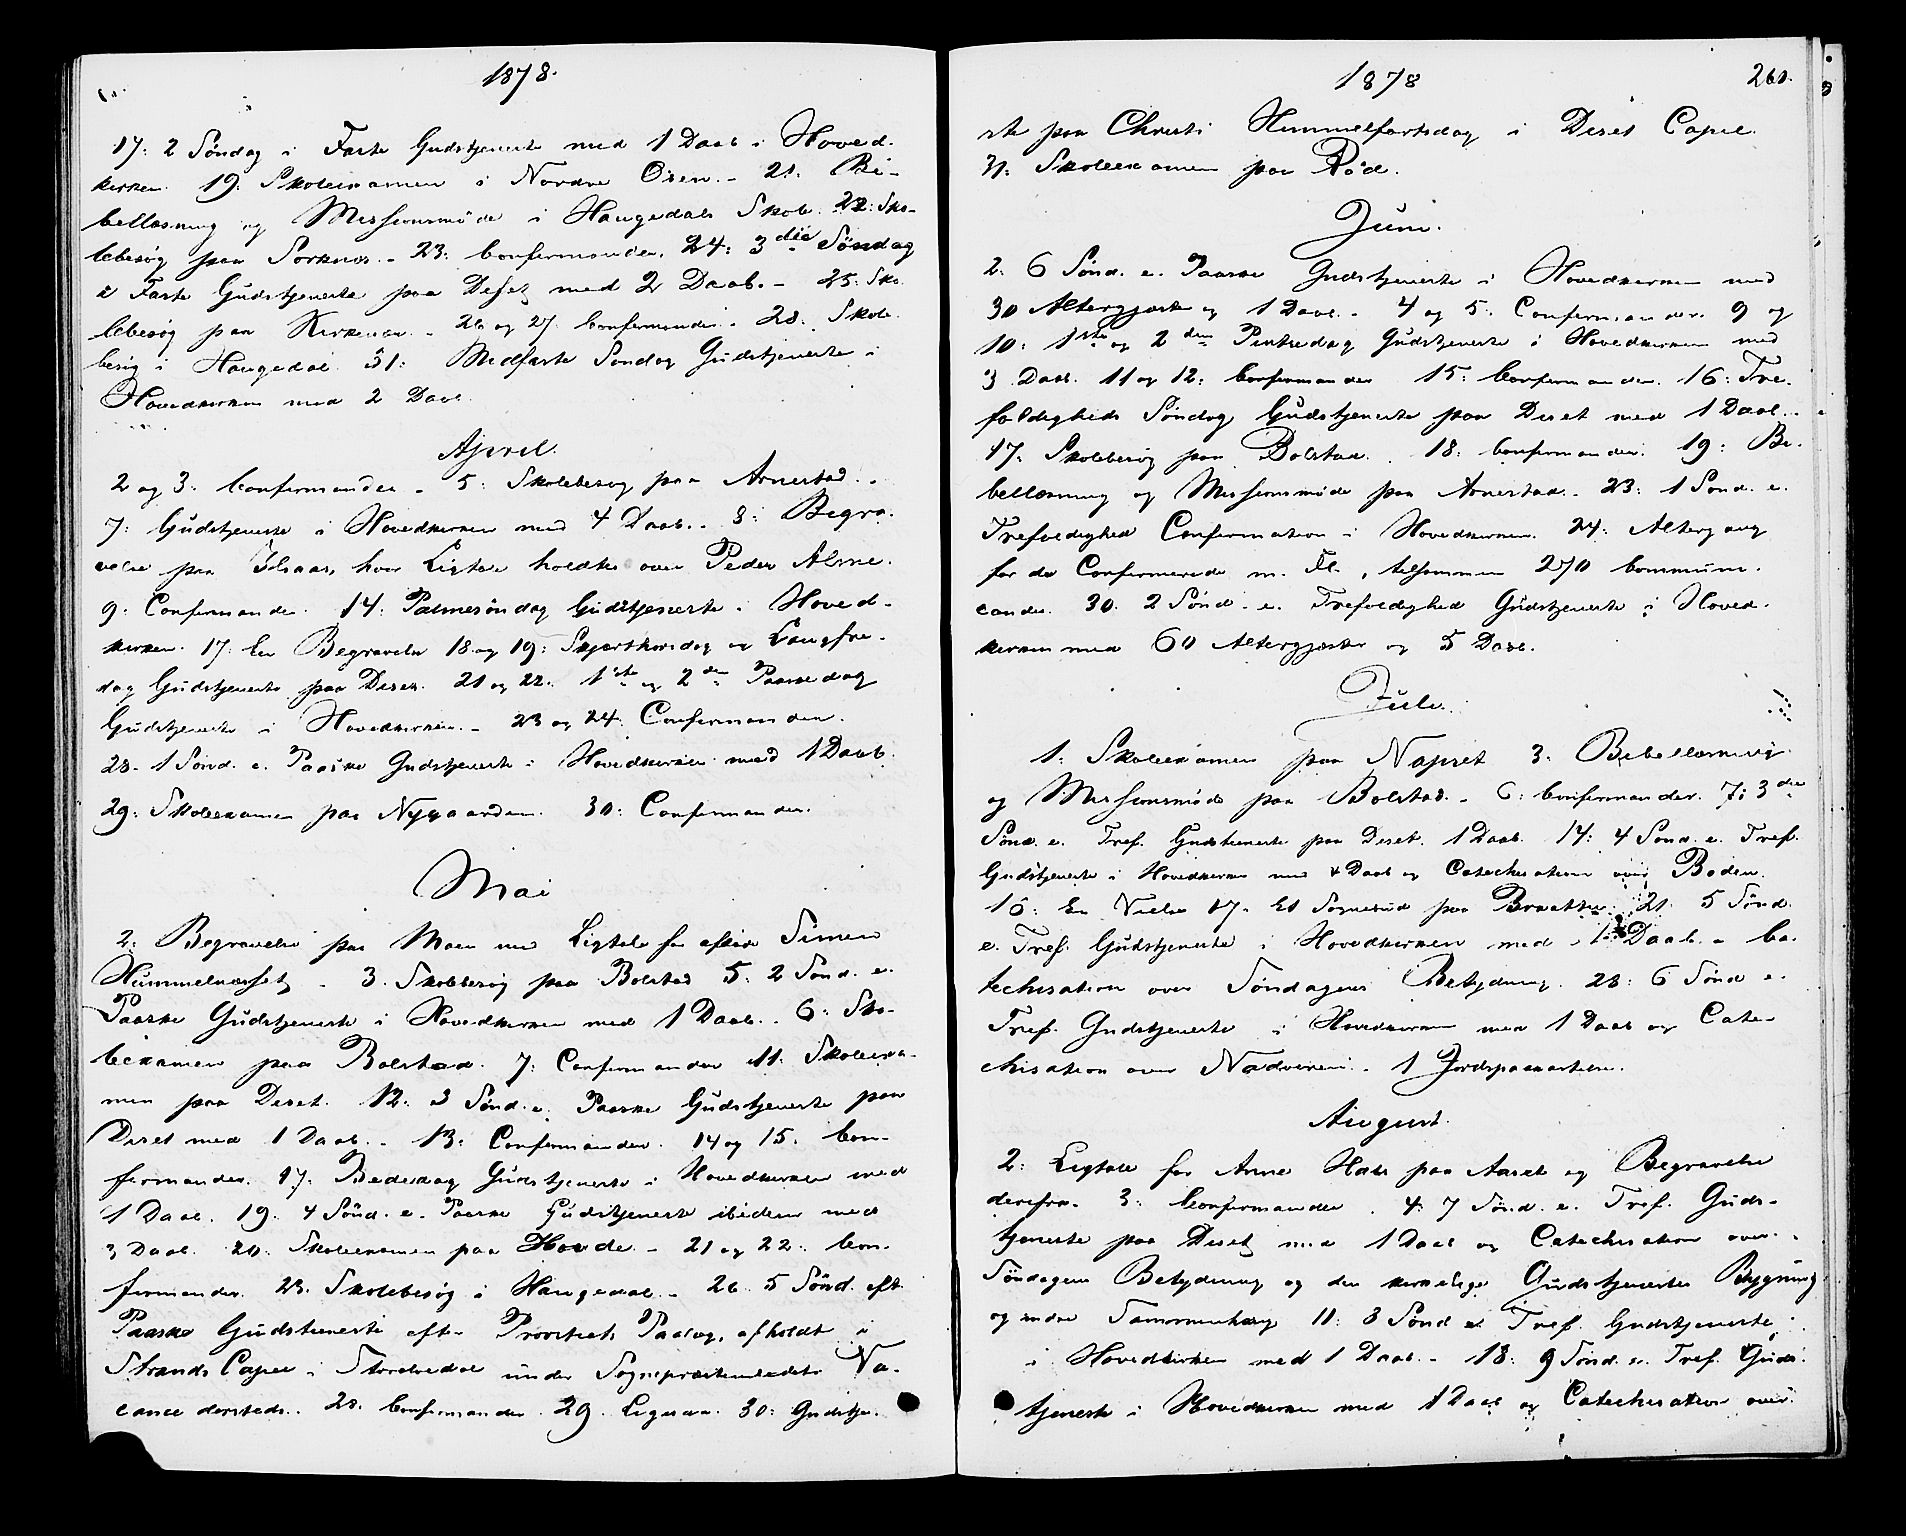 1878.
17: 2 Søndag i Faste Gudstjeneste med 1 Daab i Hoved-
kirken. 19: Skoleexamen i Nordre Osen. - 21: Bi-
bellæsning og Missionsmøde i Haugedals Skole. 22: Sko-
lebesøg paa Sorknes. - 23: Confirmander. 24: 3die Søndag
i Faste Gudstjeneste paa Deset med 2 Daab. - 25: Sko-
lebesøg paa Kirkenær. - 26 og 27 Confirmander. 28: Skole-
besøg i Haugedal. 31: Midfaste Søndag Gudstjeneste i
Hovedkirken med 2 Daab.
April.
2 og 3: Confirmander - 5: Skolebesøg paa Arnestad. -
7: Gudstjeneste i Hovedkirken med 4 Daab. - 8: Begra-
velse paa hvor Ligtale holdtes over Peder Alme.
9: Confirmander. 14: Palmesøndag Gudstjeneste i Hoved-
kirken. 17: En Begravelse 18 og 19: Skjærthorsdag og Langfre-
dag Gudstjeneste paa Deset. 21 og 22: 1ste og 2den Paaskedag
Gudstjeneste i Hovedkirken. - 23 og 24: Confirmander.
28. 1 Sønd. e. Paaske Gudstjeneste i Hovedkirken med 1 Daab.
29: Skoleexamen paa Nygaarden. 30: Confirmander.
Mai
2: Begravelse paa Moen med Ligtale for afdøde Simen
Hummelnæsset - 3. Skolebesøg paa Bolstad 5: 2 Sønd. e.
Paaske Gudstjeneste i Hovedkirken med 1 Daab. 6: Sko-
leexamen paa Bolstad. 7: Confirmander 11: Skoleexa-
men paa Deset. 12: 3 Sønd. e. Paaske Gudstjeneste paa
Deset med 1 Daab. - 13: Confirmander. 14 og 15: Con-
firmander. 17: Bededag Gudstjeneste i Hovedkirken med
1 Daab. 19: 4 Sønd. e. Paaske Gudstjeneste ibidem med
3 Daab. 20: Skoleexamen paa Hovde. - 21 og 22: Con-
firmander. 23. Skolebesøg i Haugedal. - 26. 5 Sønd. eft.
Paaske Gudstjeneste efter Provstiets Paalæg, afholdt i
Strands Capel i Storelvedal under Sognepræsteembedets Va-
cance dersteds. 28. Confirmander. 29. 30: Gudstje-
1878
261.
ste paa Christi Himmelfartsdag i Deset Capel.
31: Skoleexamen paa Rød.
Juni.
2: 6 Sønd. e. Paaske Gudstjeneste i Hovedkirken med
30 Altergjæster og 1 Daab. - 4 og 5: Confirmander. 9 og
10: 1ste og 2den Pintsedag Gudstjeneste i Hovedkirken med
3 Daab. 11 og 12: Confirmander 15: Confirmander. 16: Tre-
foldigheds Søndag Gudstjeneste paa Deset med 1 Daab. -
17: Skolebesøg paa Bolstad. 18: Confirmander. 19: Bi-
bellæsning og Missionsmøde paa Arnestad. 23: 1 Sønd. e.
Trefoldighed Confirmation i Hovedkirken. 24: Altergang
for de Confirmerede m. Fl., tilsammen 270 Commüni-
cander. 30. 2 Sønd. e. Trefoldighed Gudstjeneste i Hoved-
kirken med 60 Altergjæster og 5 Daab.
Juli.
1: Skoleexamen paa Napset 3: Bibellæsning
og Missionsmøde paa Bolstad. - 6: Confirmander. 7: 3die
Sønd. e. Tref. Gudstjeneste paa Deset. 1 Daab. 14: 4 Sønd. e. Tref.
Gudstjeneste i Hovedkirken med 4 Daab og Catechisation over Boden.
16: En Vielse 17: Et Sognebud paa 21: 5 Sønd.
e. Tref. Gudstjeneste i Hovedkirken med 1 Daab. - Ca-
techisation over Søndagens Betydning. 28: 6 Sønd e.
Tref. Gudstjeneste i Hovedkirken med 1 Daab og Cate-
chisation over Nadveren. - 1 Jordspaakastelse.
August.
2: Ligtale for Arne paa Aaset og Begravelse
derefra. 3: Confirmander. 4: 7 Sønd. e. Tref. Guds-
tjeneste paa Deset med 1 Daab og Catechisation over
Søndagens Betydning og den kirkelige Gudstjenestes Bygning
og indre Sammenhæng 11: 8 Sønd e. Tref. Gudstjeneste
i Hovedkirken med 1 Daab. - 18: 9 Sønd. e. Tref. Guds-
tjeneste i Hovedkirken med 1 Daab og Catechisation over